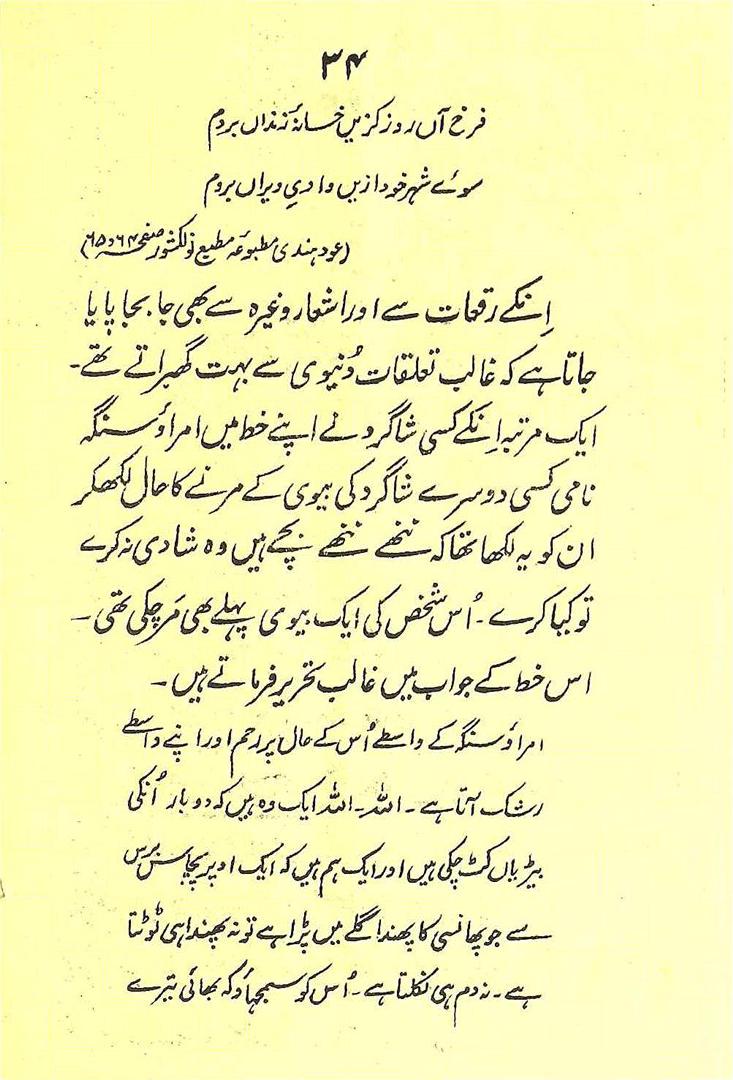 ۳۴
فرخ آں روز کزیں خانۂ زنداں بروم
سوئے شہر خود ازیں وادیِ ویراں بروم
(عود ہندی مطبوعہ مطبع نولکشور صفحہ ۶۴ و ۶۵)
اِنکے رقعات سے اور اشعار وغیرہ سے بھی جا بجا پایا
جاتا ہے کہ غالب تعلقات دُنیوی سے بہت گھبراتے تھے۔
ایک مرتبہ اِنکے کسی شاگرد نے اپنے خط میں امراؤ سنگہ
نامی کسی دوسرے شاگرد کی بیوی کے مرنے کا حال لکھکر
ان کو یہ لکھا تھا کہ ننھے ننھے بچے ہیں وہ شادی نہ کرے
تو کیا کرے۔ اُس شخص کی ایک بیوی پہلے بھی مَر چکی تھی۔
اس خط کے جواب میں غالب تحریر فرماتے ہیں۔
امراؤ سنگہ کے واسطے اُس کے حال پر رحم اور اپنے واسطے
رشک آتا ہے۔ اللہ۔ اللہ ایک وہ ہیں کہ دو بار اُنکی
بیڑیاں کٹ چکی ہیں اور ایک ہم ہیں کہ ایک اوپر پچاس برس
سے جو پھانسی کا پھندا گلے میں پڑا ہے تو نہ پھندا ہی ٹوٹتا
ہے۔ نہ دم ہی نکلتا ہے۔ اُس کو سمجہاؤ کہ بھائی تیرے